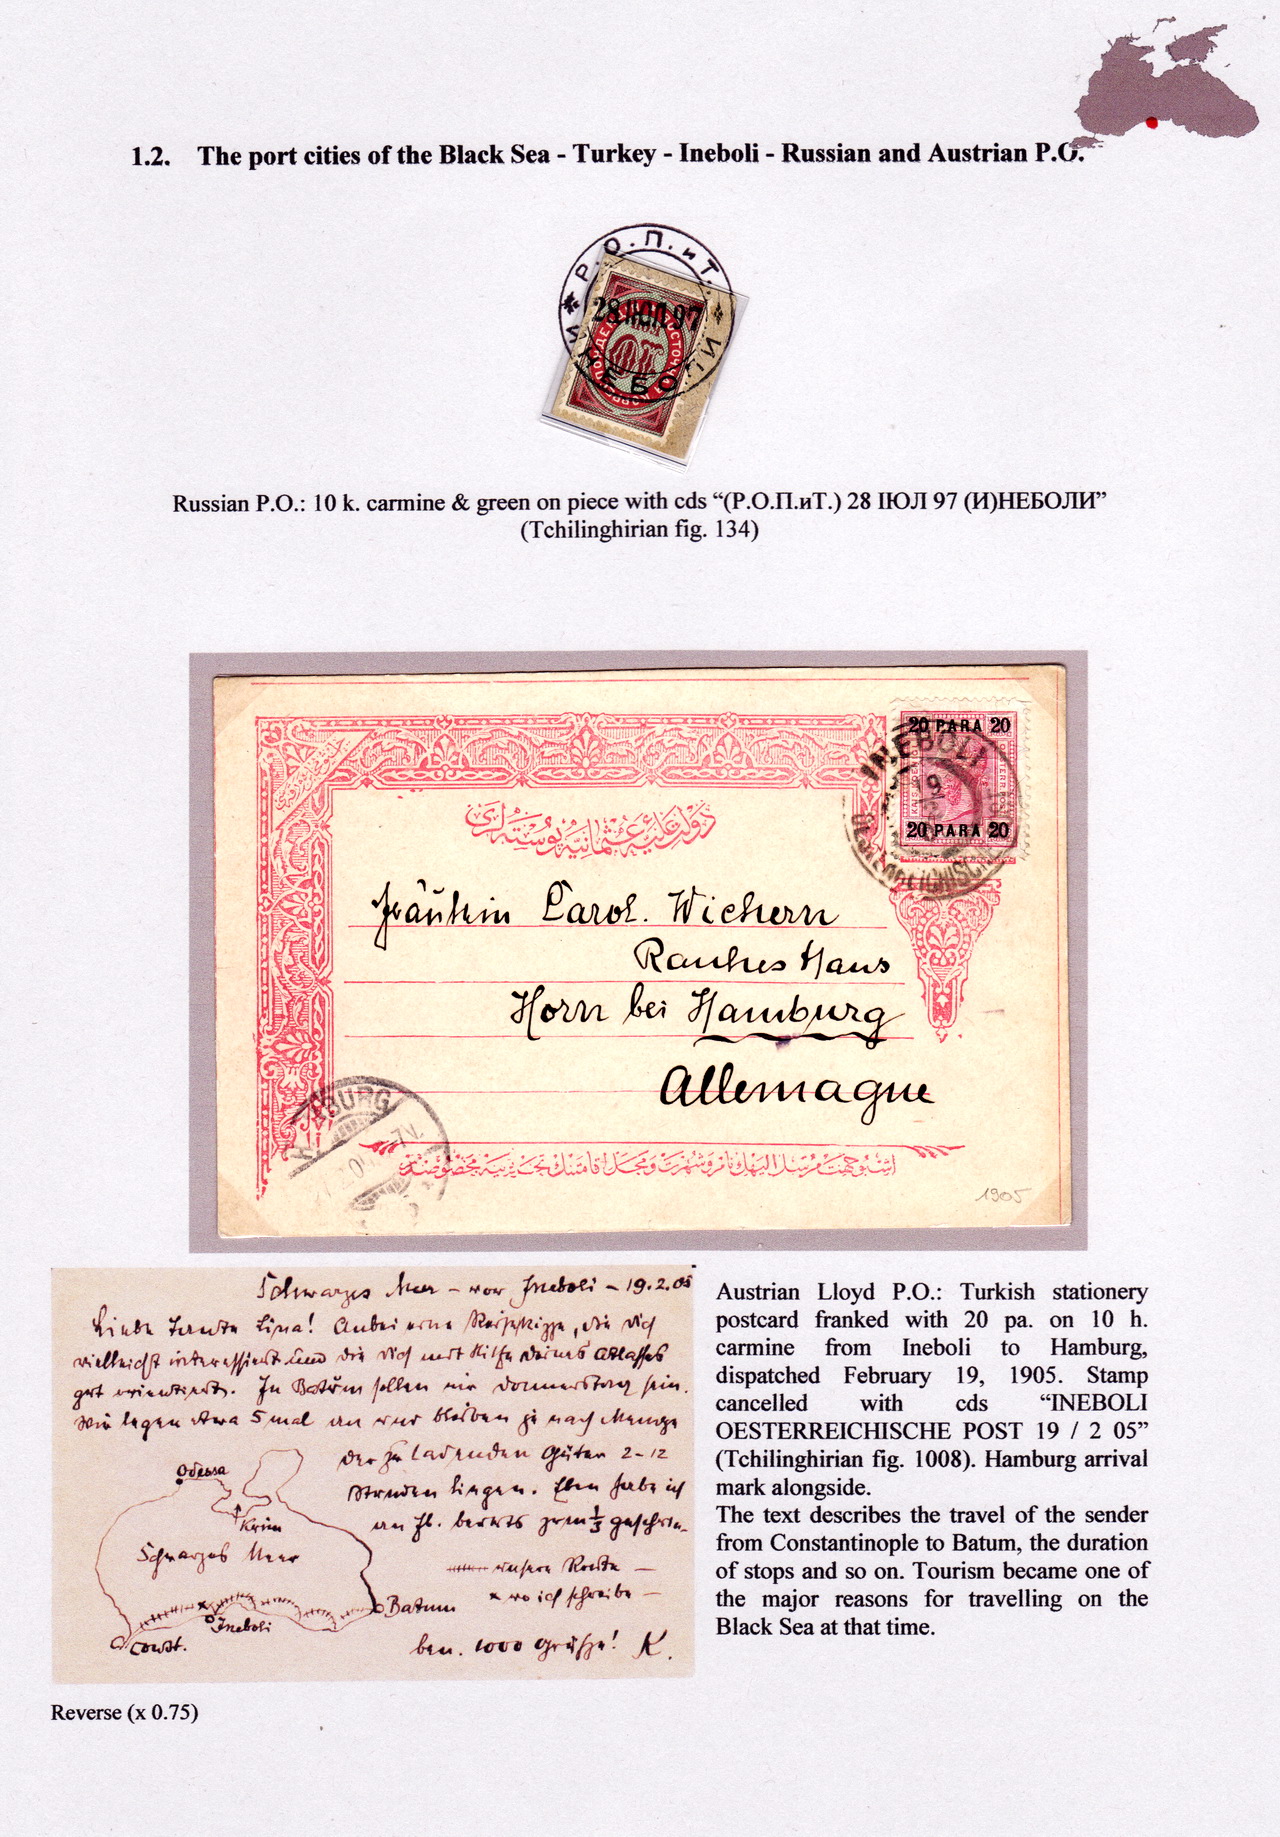 1.2. The port cities of the Black Sea - Turkey - Ineboli - Russian and Austrian P.O.
Р.О.П.иТ.
28 ІЮЛ 97
ИНЕБОЛИ
Russian P.O.: 10 k. carmine & green on piece with cds “(Р.О.П.иТ.) 28 ІЮЛ 97 (И)НЕБОЛИ”
(Tchilinghirian fig. 134)
20 PARA 20
INEBOLI
19
20 PARA 20
دولت علیۀ عثمانیه پوسته لری
Fräulein Carol. Wichern
Rauhes Haus
Horn bei Hamburg
Allemagne
HAMBURG
1905
Schwarzes Meer – vor Ineboli – 19.2.05
Liebe Tante Lina! Anbei eine Reiseskizze, die dich
vielleicht interessiert und die dich mit Hilfe deines Atlasses
gut orientiert. In Batum sollen wir Donnerstag sein.
Wir legen etwa 5 mal an und bleiben je nach Menge
der zu ladenden Güter 2–12
Stunden liegen. Eben habe ich
an
Odessa
Krim
Schwarzes Meer
unsere Route –
x wo ich schreibe –
Batum
Ineboli
Const.
1000 Grüße! K.
Austrian Lloyd P.O.: Turkish stationery
postcard franked with 20 pa. on 10 h.
carmine from Ineboli to Hamburg,
dispatched February 19, 1905. Stamp
cancelled with cds “INEBOLI
OESTERREICHISCHE POST 19 / 2 05”
(Tchilinghirian fig. 1008). Hamburg arrival
mark alongside.
The text describes the travel of the sender
from Constantinople to Batum, the duration
of stops and so on. Tourism became one of
the major reasons for travelling on the
Black Sea at that time.
Reverse (x 0.75)